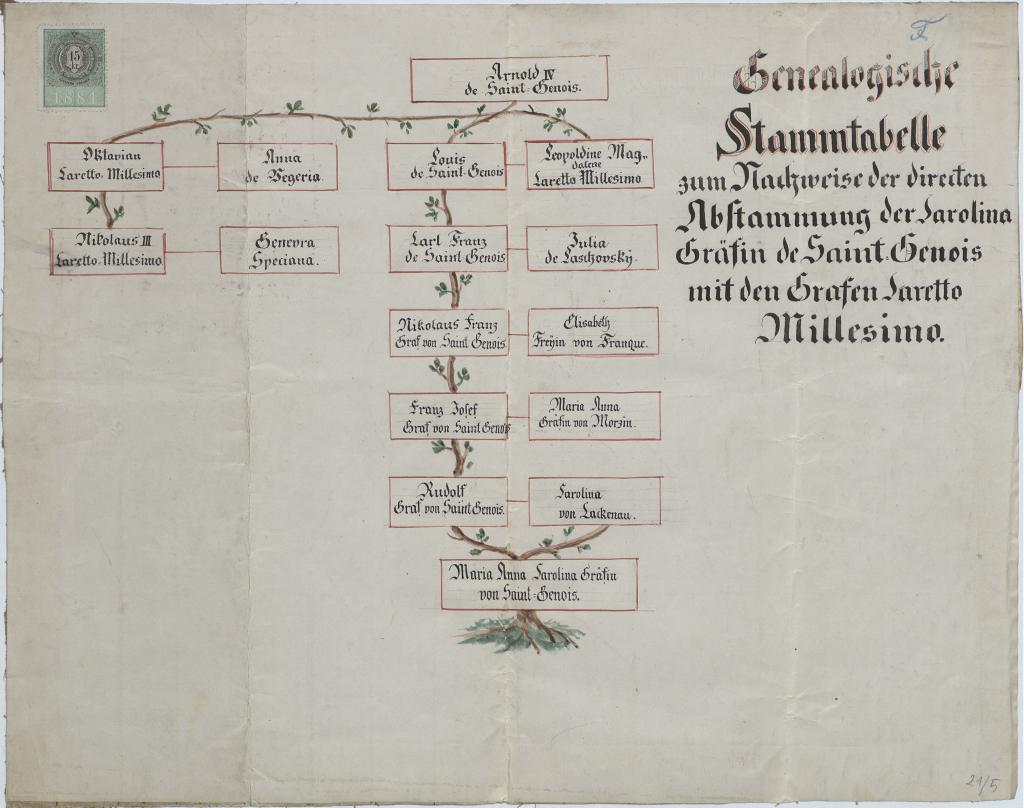 15
kr
1881
F
Genealogische
Stammtabelle
zum Nachweise der directen
Abstammung der Carolina
Gräfin de Saint-Genois
mit den Grafen Caretto
Millesimo.
Arnold IV
de Saint-Genois.
Oktavian
Caretto-Millesimo
Anna
de Vegeria.
Louis
de Saint-Genois
Leopoldine Mag-
dalene
Caretto Millesimo.
Nikolaus III
Caretto-Millesimo
Genevra
Speciana.
Carl Franz
de Saint-Genois
Julia
de Laschovský.
Nikolaus Franz
Graf von Saint Genois.
Elisabeth
Freyin von Franque.
Franz Josef
Graf von Saint Genois
Maria Anna
Gräfin von Morzin.
Rudolf
Graf von Saint Genois.
Carolina
von Lackenau.
Maria Anna Carolina Gräfin
von Saint-Genois.
21/5